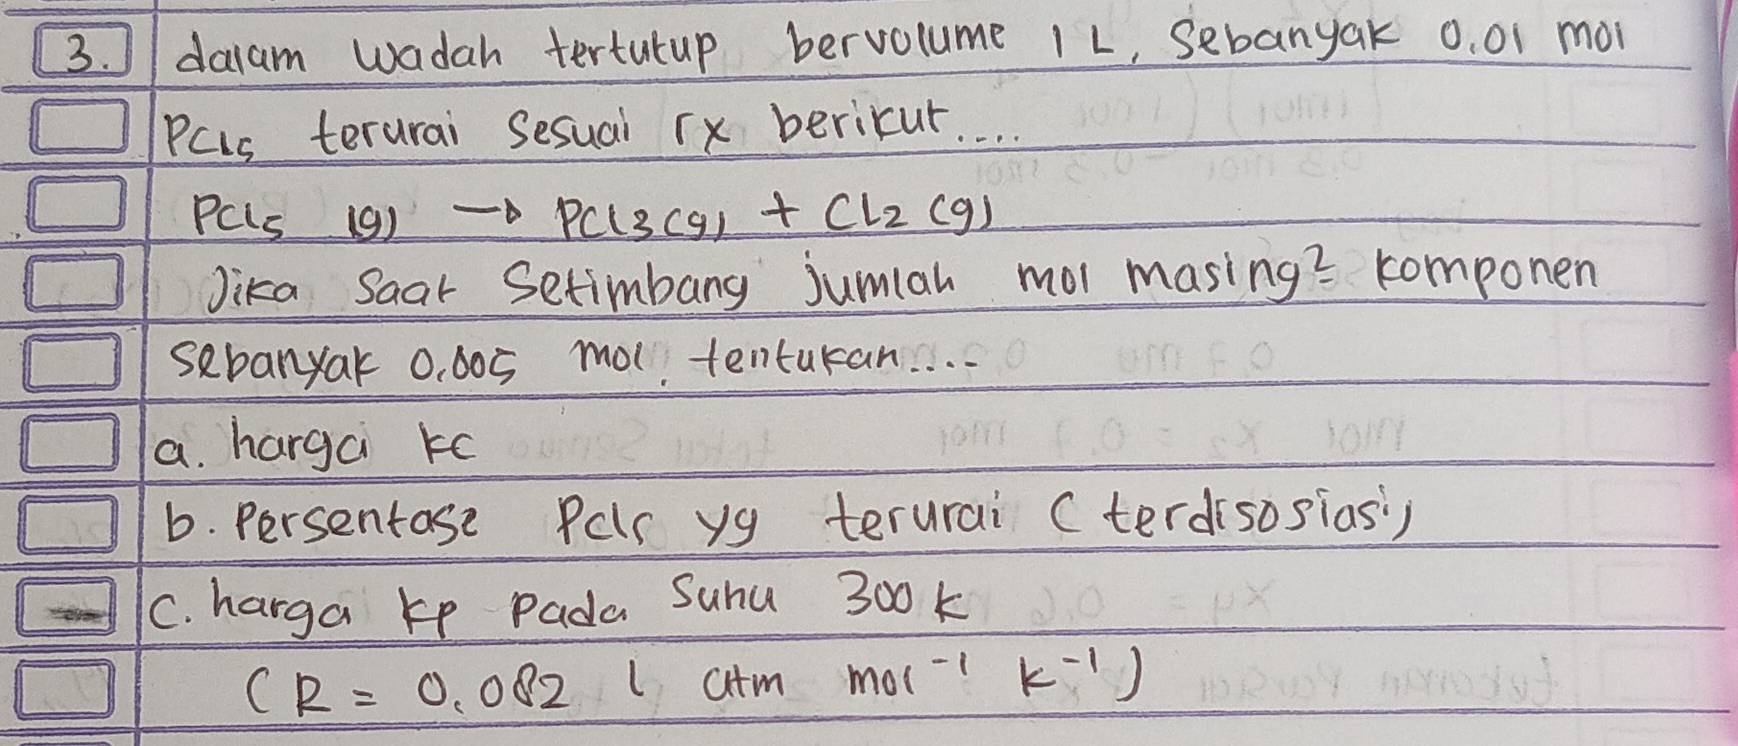 3. dalam wadah tertutup bervolume 1 L, Sebanyak 0.01 mol
PCl5 terurai sesuai rx berikut....
PCl5 (g) → PCl3 (g) + Cl2 (g)
Jika saat Setimbang jumlah mol masing2 komponen
sebanyak 0,005 mol, tentukan....
a. harga kc
b. Persentase Pcl5 yg terurai (terdisosiasi)
c. harga kp pada suhu 300 k
(R = 0.082 l atm mol⁻¹ k⁻¹)